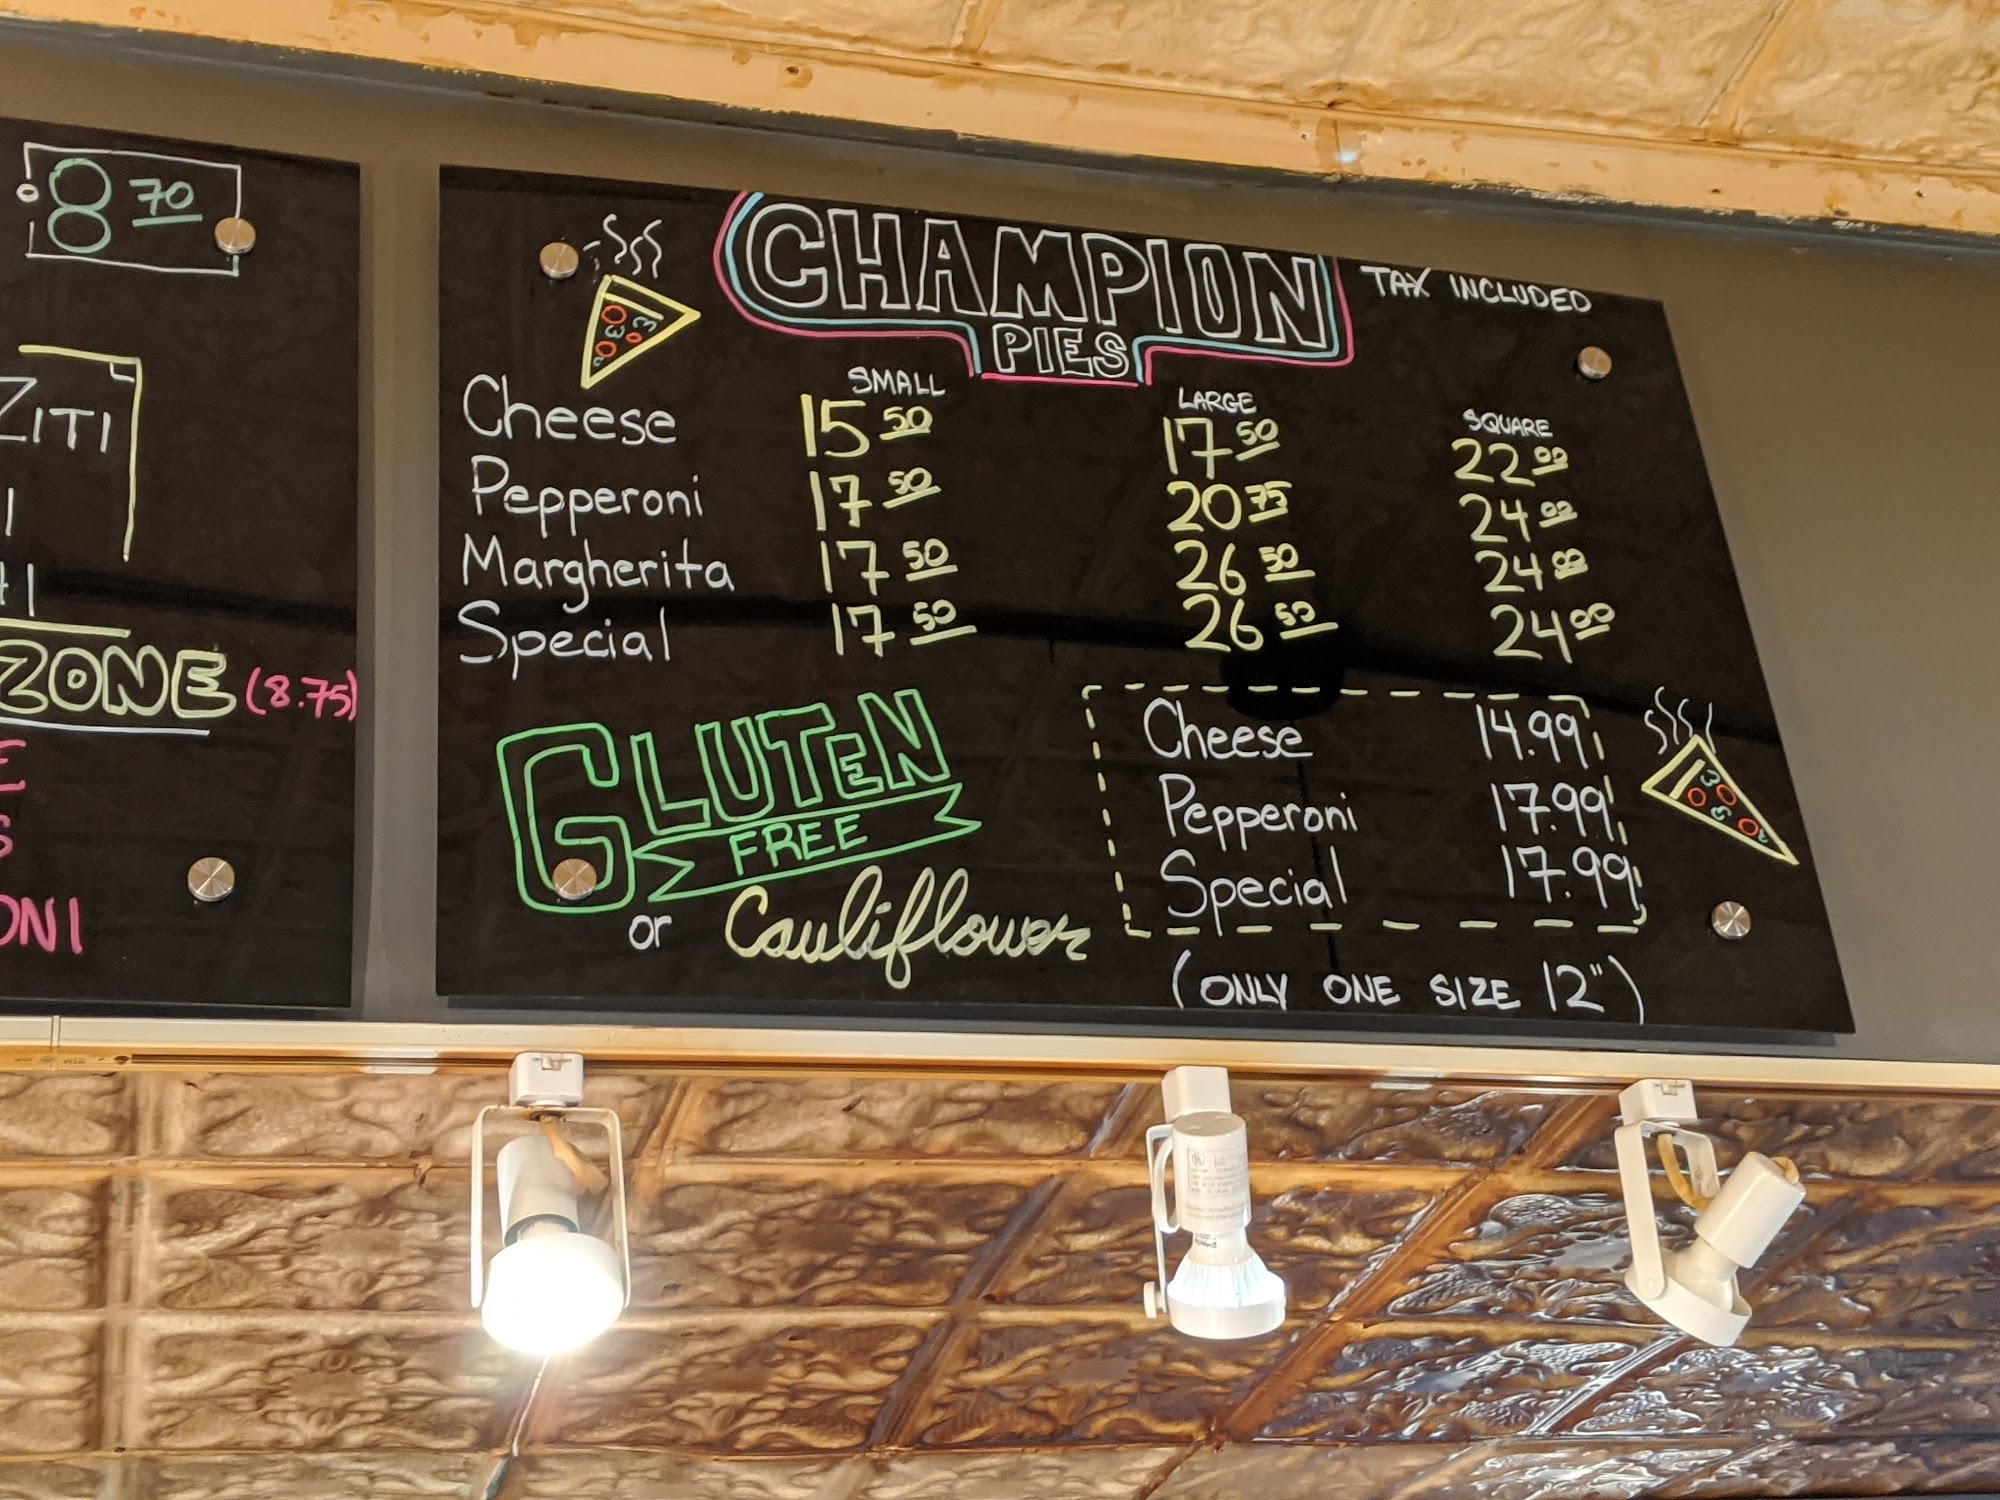 8 70
ZITI
ZONE (8.75)
ONI
CHAMPION
PIES
TAX INCLUDED
SMALL LARGE SQUARE
Cheese 15 50 17 50 22 00
Pepperoni 17 50 20 75 24 00
Margherita 17 50 26 50 24 00
Special 17 50 26 50 24 00
GLUTEN
FREE
or Cauliflower
Cheese 14.99
Pepperoni 17.99
Special 17.99
(ONLY ONE SIZE 12")